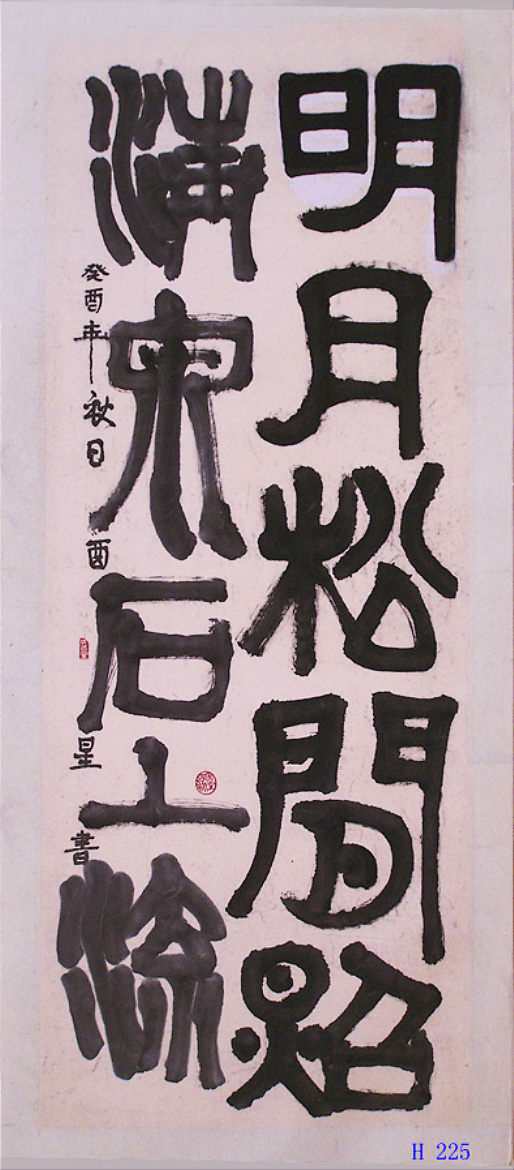 明月松間照
清泉石上流
癸酉年秋日酉星書
H 225